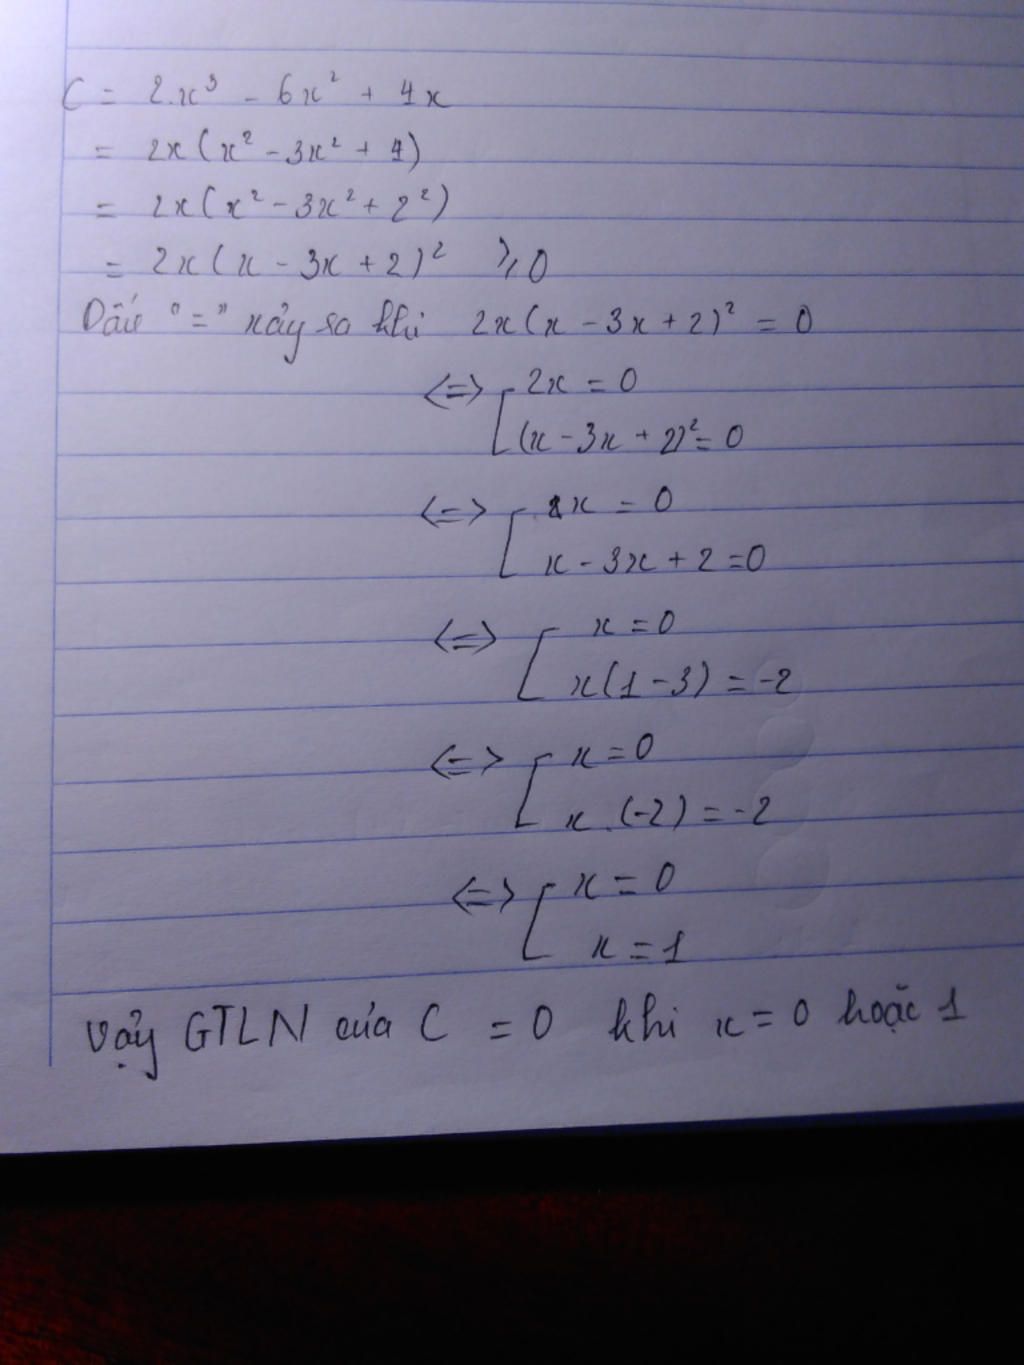 C = 2.x³ - 6x² + 4x
= 2x(x² - 3x² + 4)
= 2x(x² - 3x² + 2²)
= 2x(x - 3x + 2)² ⩾ 0
Dấu "=" xảy ra khi 2x(x - 3x + 2)² = 0
<=> [ 2x = 0
(x - 3x + 2)² = 0
<=> [ 2x = 0
x - 3x + 2 = 0
<=> [ x = 0
x(1 - 3) = -2
<=> [ x = 0
x.(-2) = -2
<=> [ x = 0
x = 1
Vậy GTLN của C = 0 khi x = 0 hoặc 1